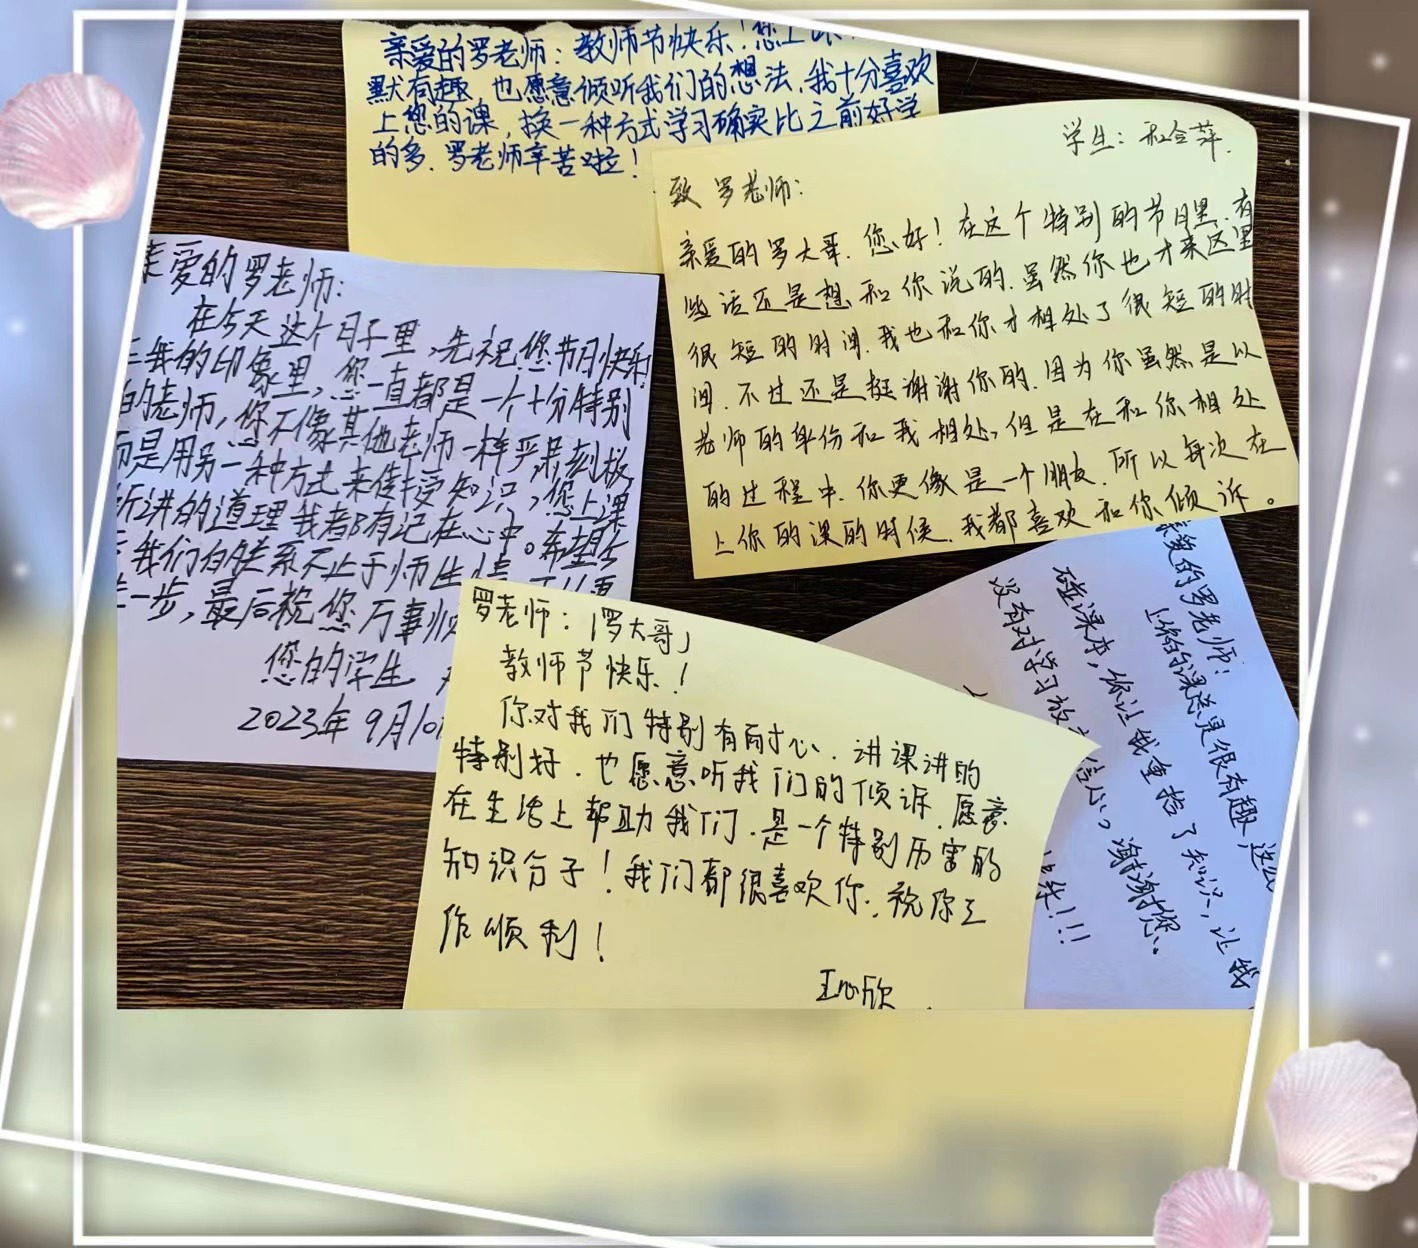 亲爱的罗老师：教师节快乐！您上课
默有趣，也愿意倾听我们的想法，我十分喜欢
上您的课，换一种方式学习确实比之前好学
的多，罗老师辛苦啦！
学生：和合萍
致罗老师：
亲爱的罗大哥，您好！在这个特别的节日里，有
些话还是想和你说的，虽然你也才来这里
很短的时间，我也和你才相处了很短的时
间，不过还是挺谢谢你的，因为你虽然是以
老师的身份和我相处，但是在和你相处
的过程中，你更像是一个朋友，所以每次在
上你的课的时候，我都喜欢和你倾诉。
亲爱的罗老师：
在今天这个日子里，先祝您节日快乐
我的印象里，您一直都是一个十分特别
的老师，您不像其他老师一样严肃刻板
而是用另一种方式来传受知识，您上课
所讲的道理我都有记在心中。希望今
我们的关系不止于师生情
一步，最后祝您万事顺
您的学生
2023年9月10
罗老师：「罗大哥」
教师节快乐！
你对我们特别有耐心，讲课讲的
特别好，也愿意听我们的倾诉，愿意
在生活上帮助我们，是一个特别厉害的
知识分子！我们都很喜欢你，祝你工
作顺利！
王心欣
亲爱的罗老师：
上你的课总是很有趣，这
让我
碰课本，你让我重拾了知识，
没有对学习放 信心，谢谢您。
！！！